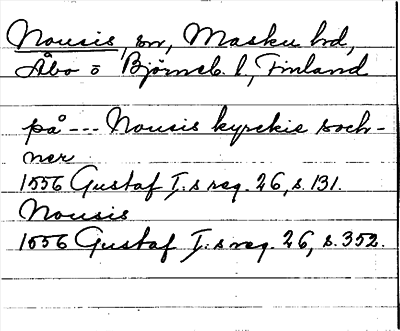 Nousis, sn, Masku hd,
Åbo o Björneb. l., Finland
på --- Nousis kyrckie soch-
ner
1556 Gustaf I:s reg. 26, s. 131.
Nousis
1556 Gustaf I:s reg. 26, s. 352.